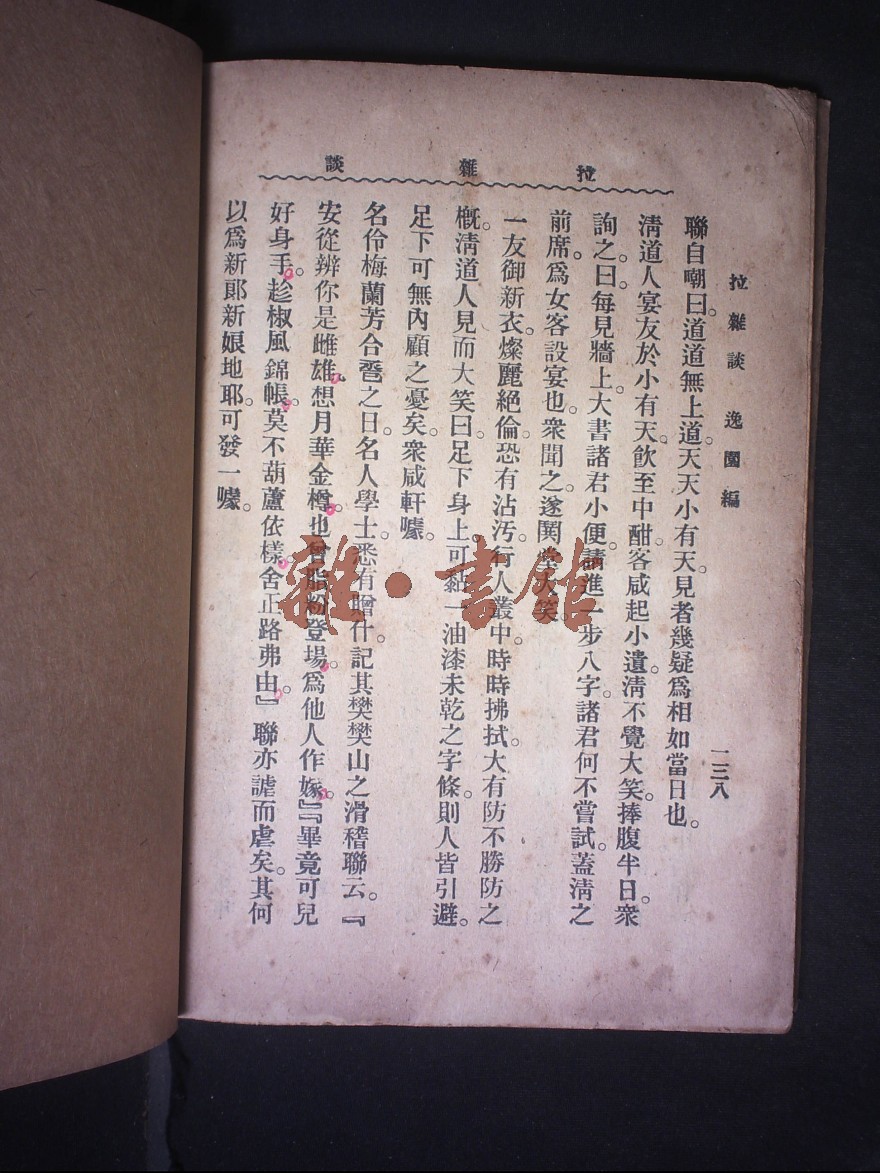 談　雜　拉
拉雜談　逸園編　一三八
聯自嘲曰。道道無上道。天天小有天。見者幾疑爲相如當日也。
淸道人宴友於小有天。飮至中酣。客咸起小遺。淸不覺大笑。捧腹半日。衆
詢之。曰。每見牆上。大書諸君小便。請進一步八字。諸君何不嘗試。蓋淸之
前席。爲女客設宴也。衆聞之。遂鬨堂大笑。
一友御新衣。燦麗絕倫。恐有沾汚。行人叢中。時時拂拭。大有防不勝防之
槪。淸道人見而大笑曰。足下身上。可黏一油漆未乾之字條。則人皆引避。
足下可無內顧之憂矣。衆咸軒噱。
名伶梅蘭芳合巹之日。名人學士。悉有贈什。記其樊樊山之滑稽聯云。『
安從辨你是雌雄。想月華金樽。也曾脂粉登場。爲他人作嫁。』『畢竟可兒
好身手。趁椒風錦帳。莫不葫蘆依樣。舍正路弗由。』聯亦謔而虐矣。其何
以爲新郞新娘地耶。可發一噱。
雜·書館